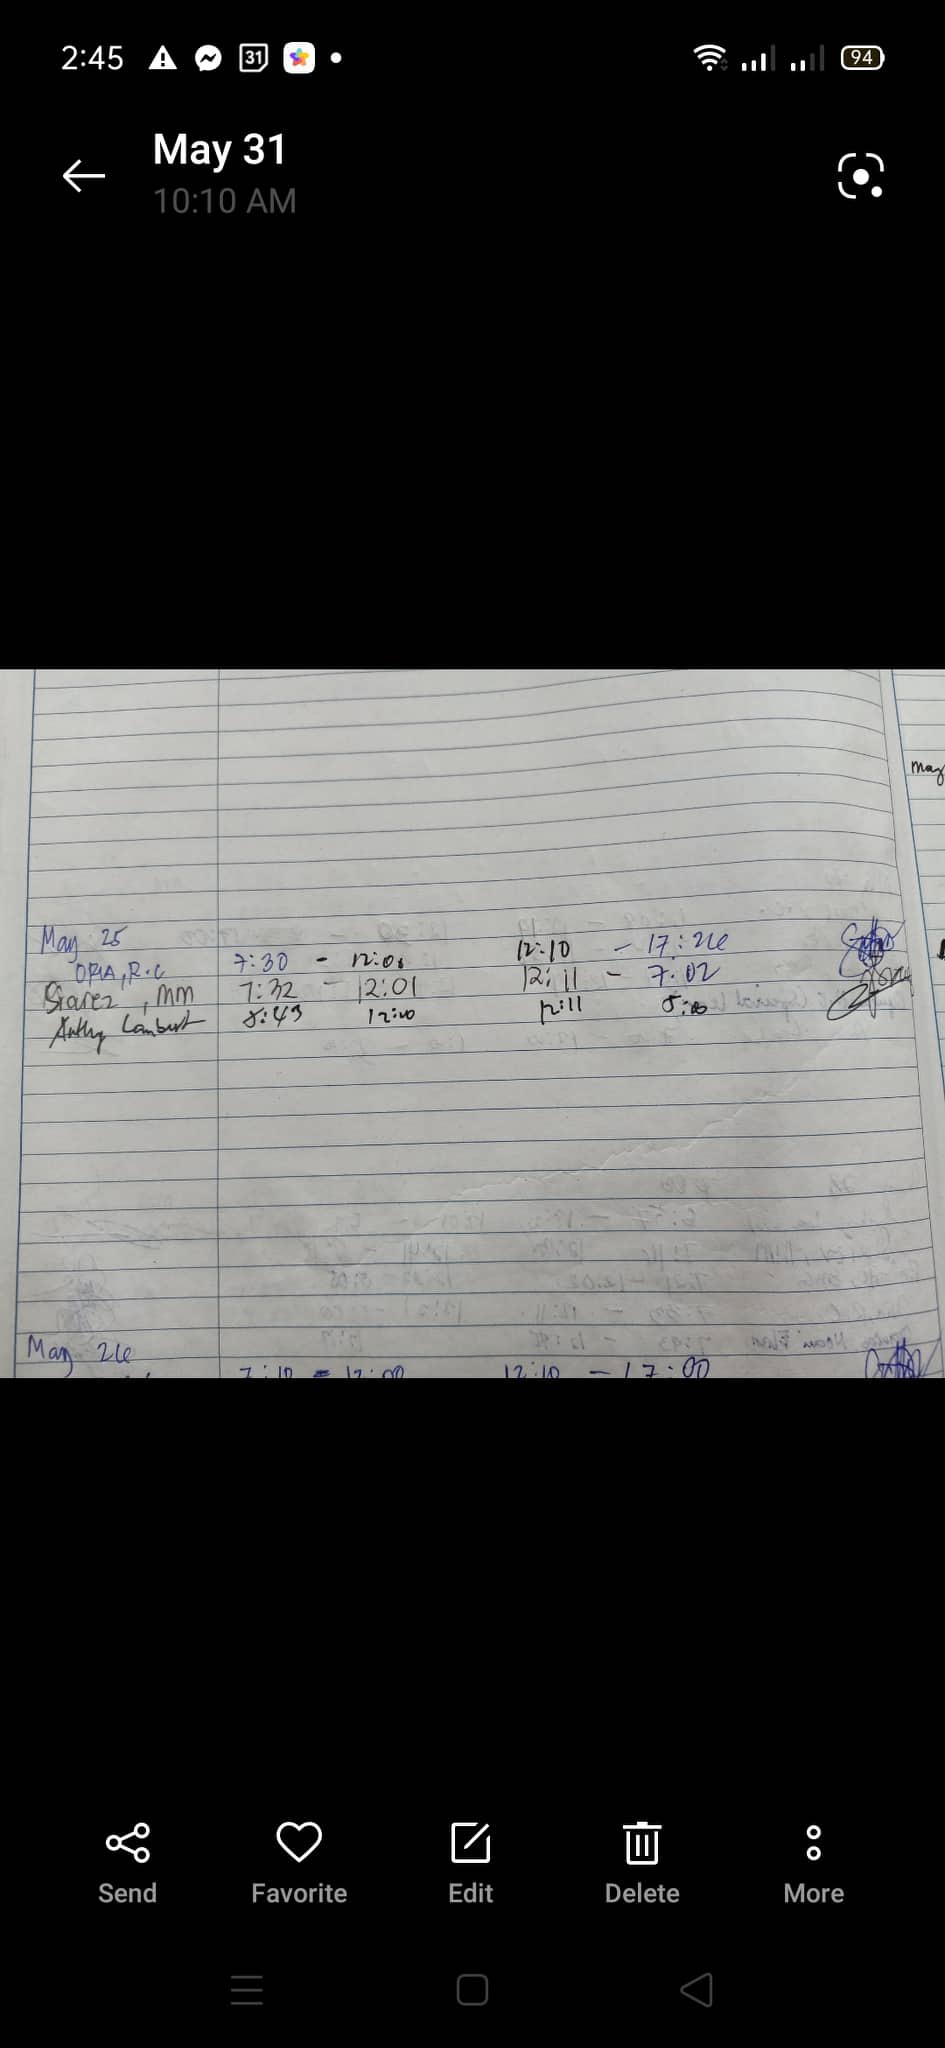 2:45 31 94
May 31
10:10 AM
may
May 25
ORIA, R.C 7:30 - 12:01 12:10 - 17:26
Siarez, MM 7:32 - 12:01 12:11 - 7:02
Lambert 8:43 12:00 12:11 5:00
May 26
7:10 = 12:00 12:10 - 17:00
Send Favorite Edit Delete More